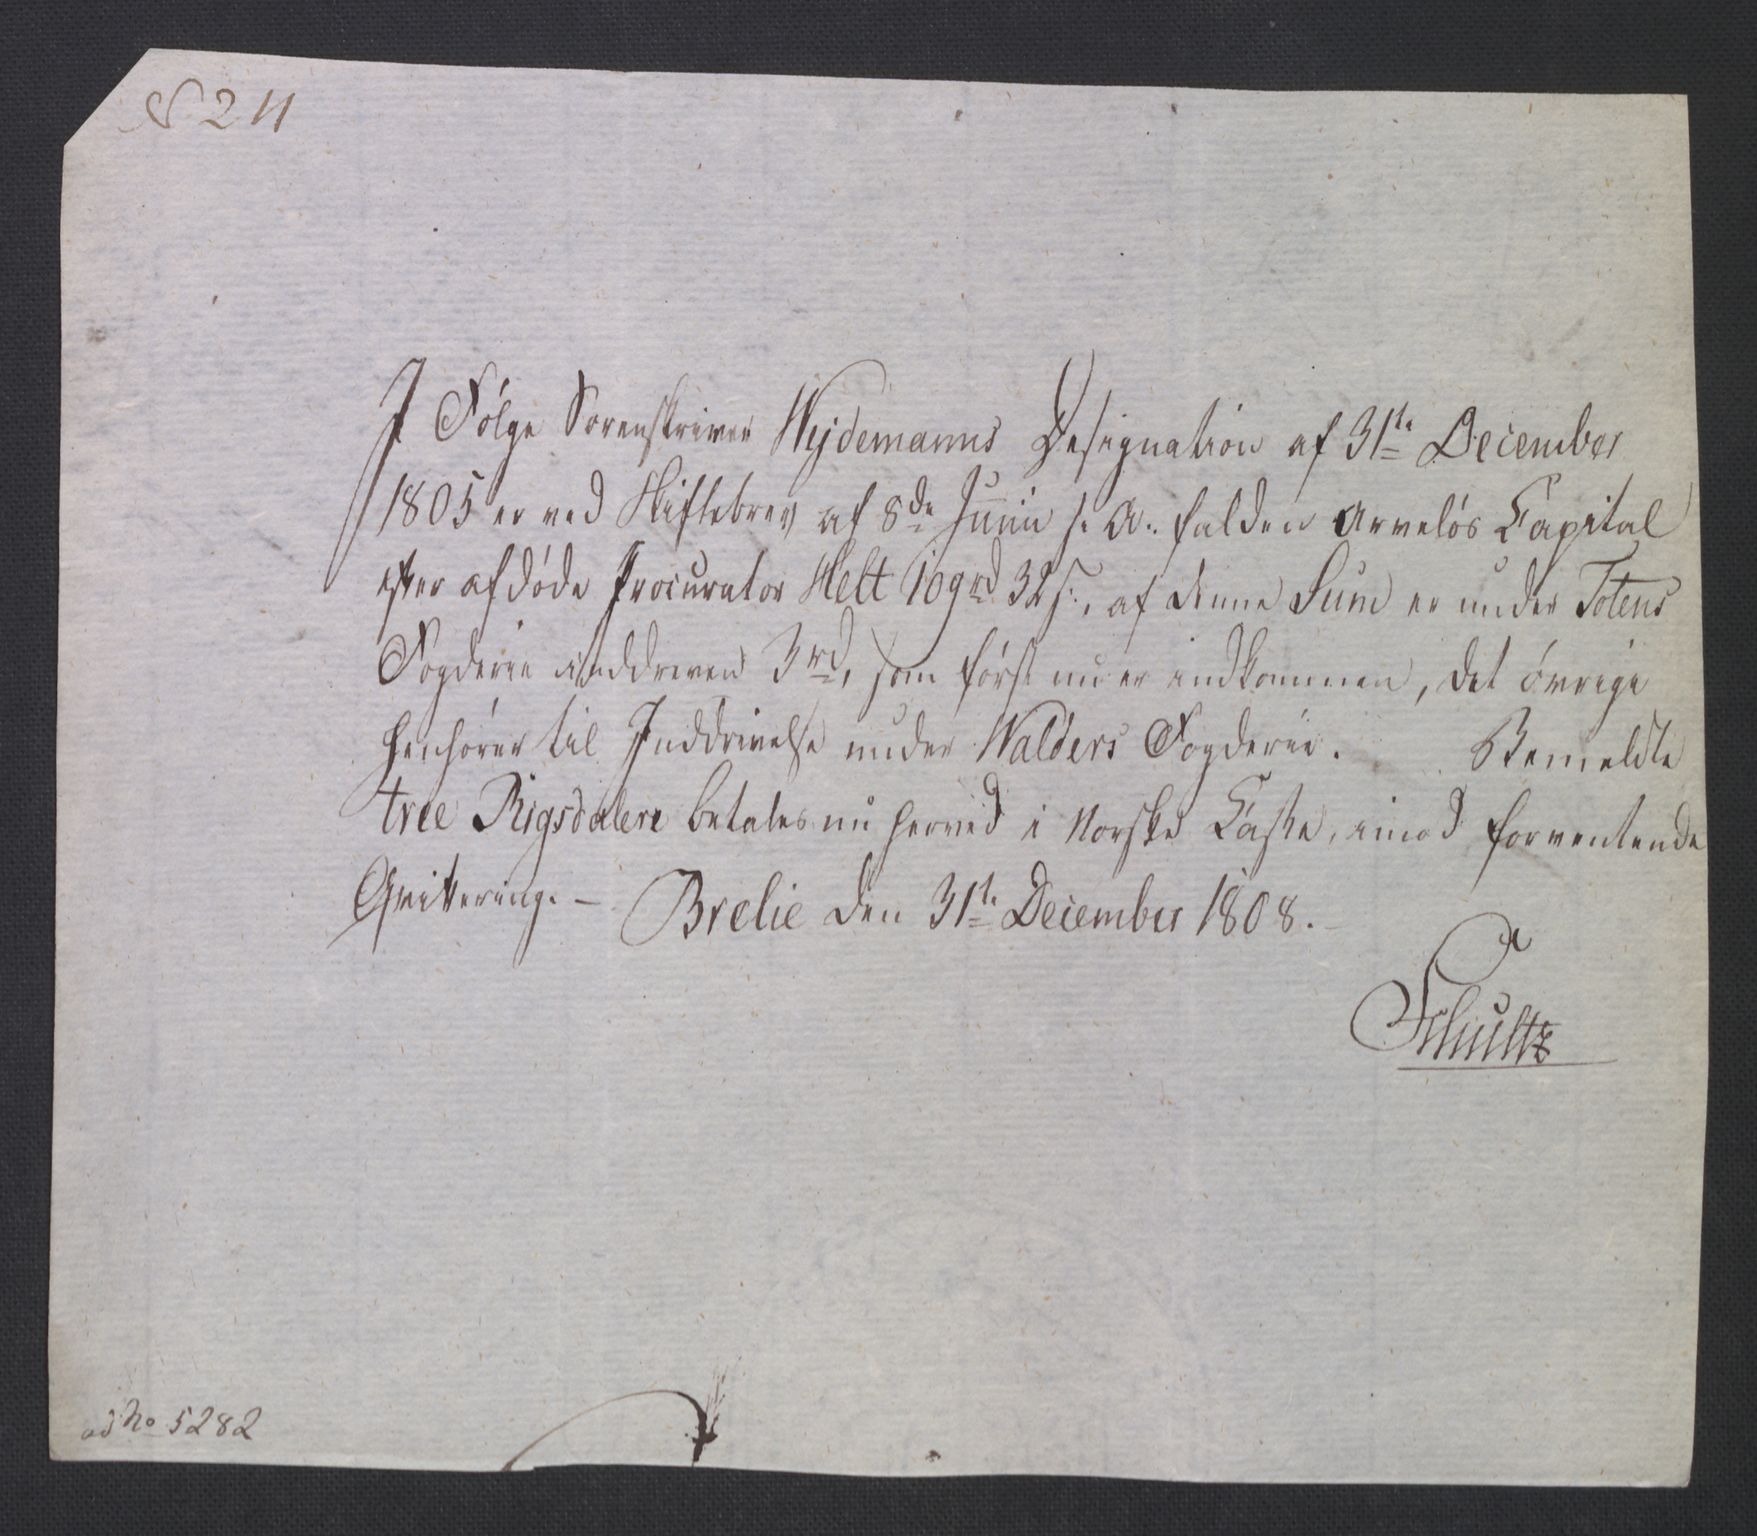 N 211
I Følge Sorenskriver Wejdemanns Designation af 31te December
1805 er ved Skiftebrev af 8de Junii s. A. falden arveløs Capital
efter afdøde Procurator Helt 109rd 32s., af denne Sum er under Totens
Fogderie inddreven 3rd, som først nu er indkommen, det øvrige
henhører til Inddrivelse under Walders Fogderie. Bemeldte
tree Rigsdalere betales nu herved i Norske Casse, imod forventende
Qvittering. — Brelie den 31te December 1808.
Schultz
ad No 5282